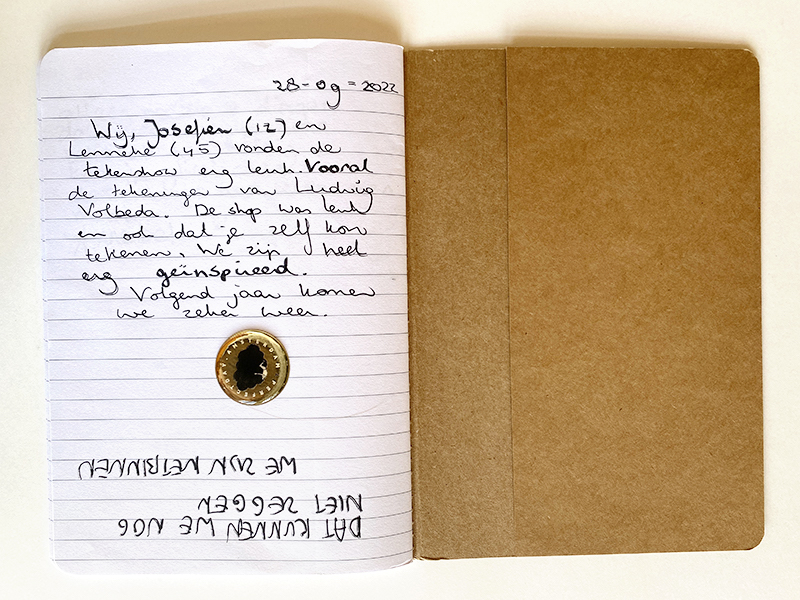 28-09-2022
Wij, Josefien (12) en
Lenneke (45) vonden de
tekenshow erg leuk. Vooral
de tekeningen van Ludwig
Volbeda. De shop was leuk
en ook dat je zelf kon
tekenen. We zijn heel
erg geïnspireerd.
Volgend jaar komen
we zeker weer.
AMSTERDAM
DAT KUNNEN WE NOG
NIET SEGGEN
WE SYN NET BINNEN